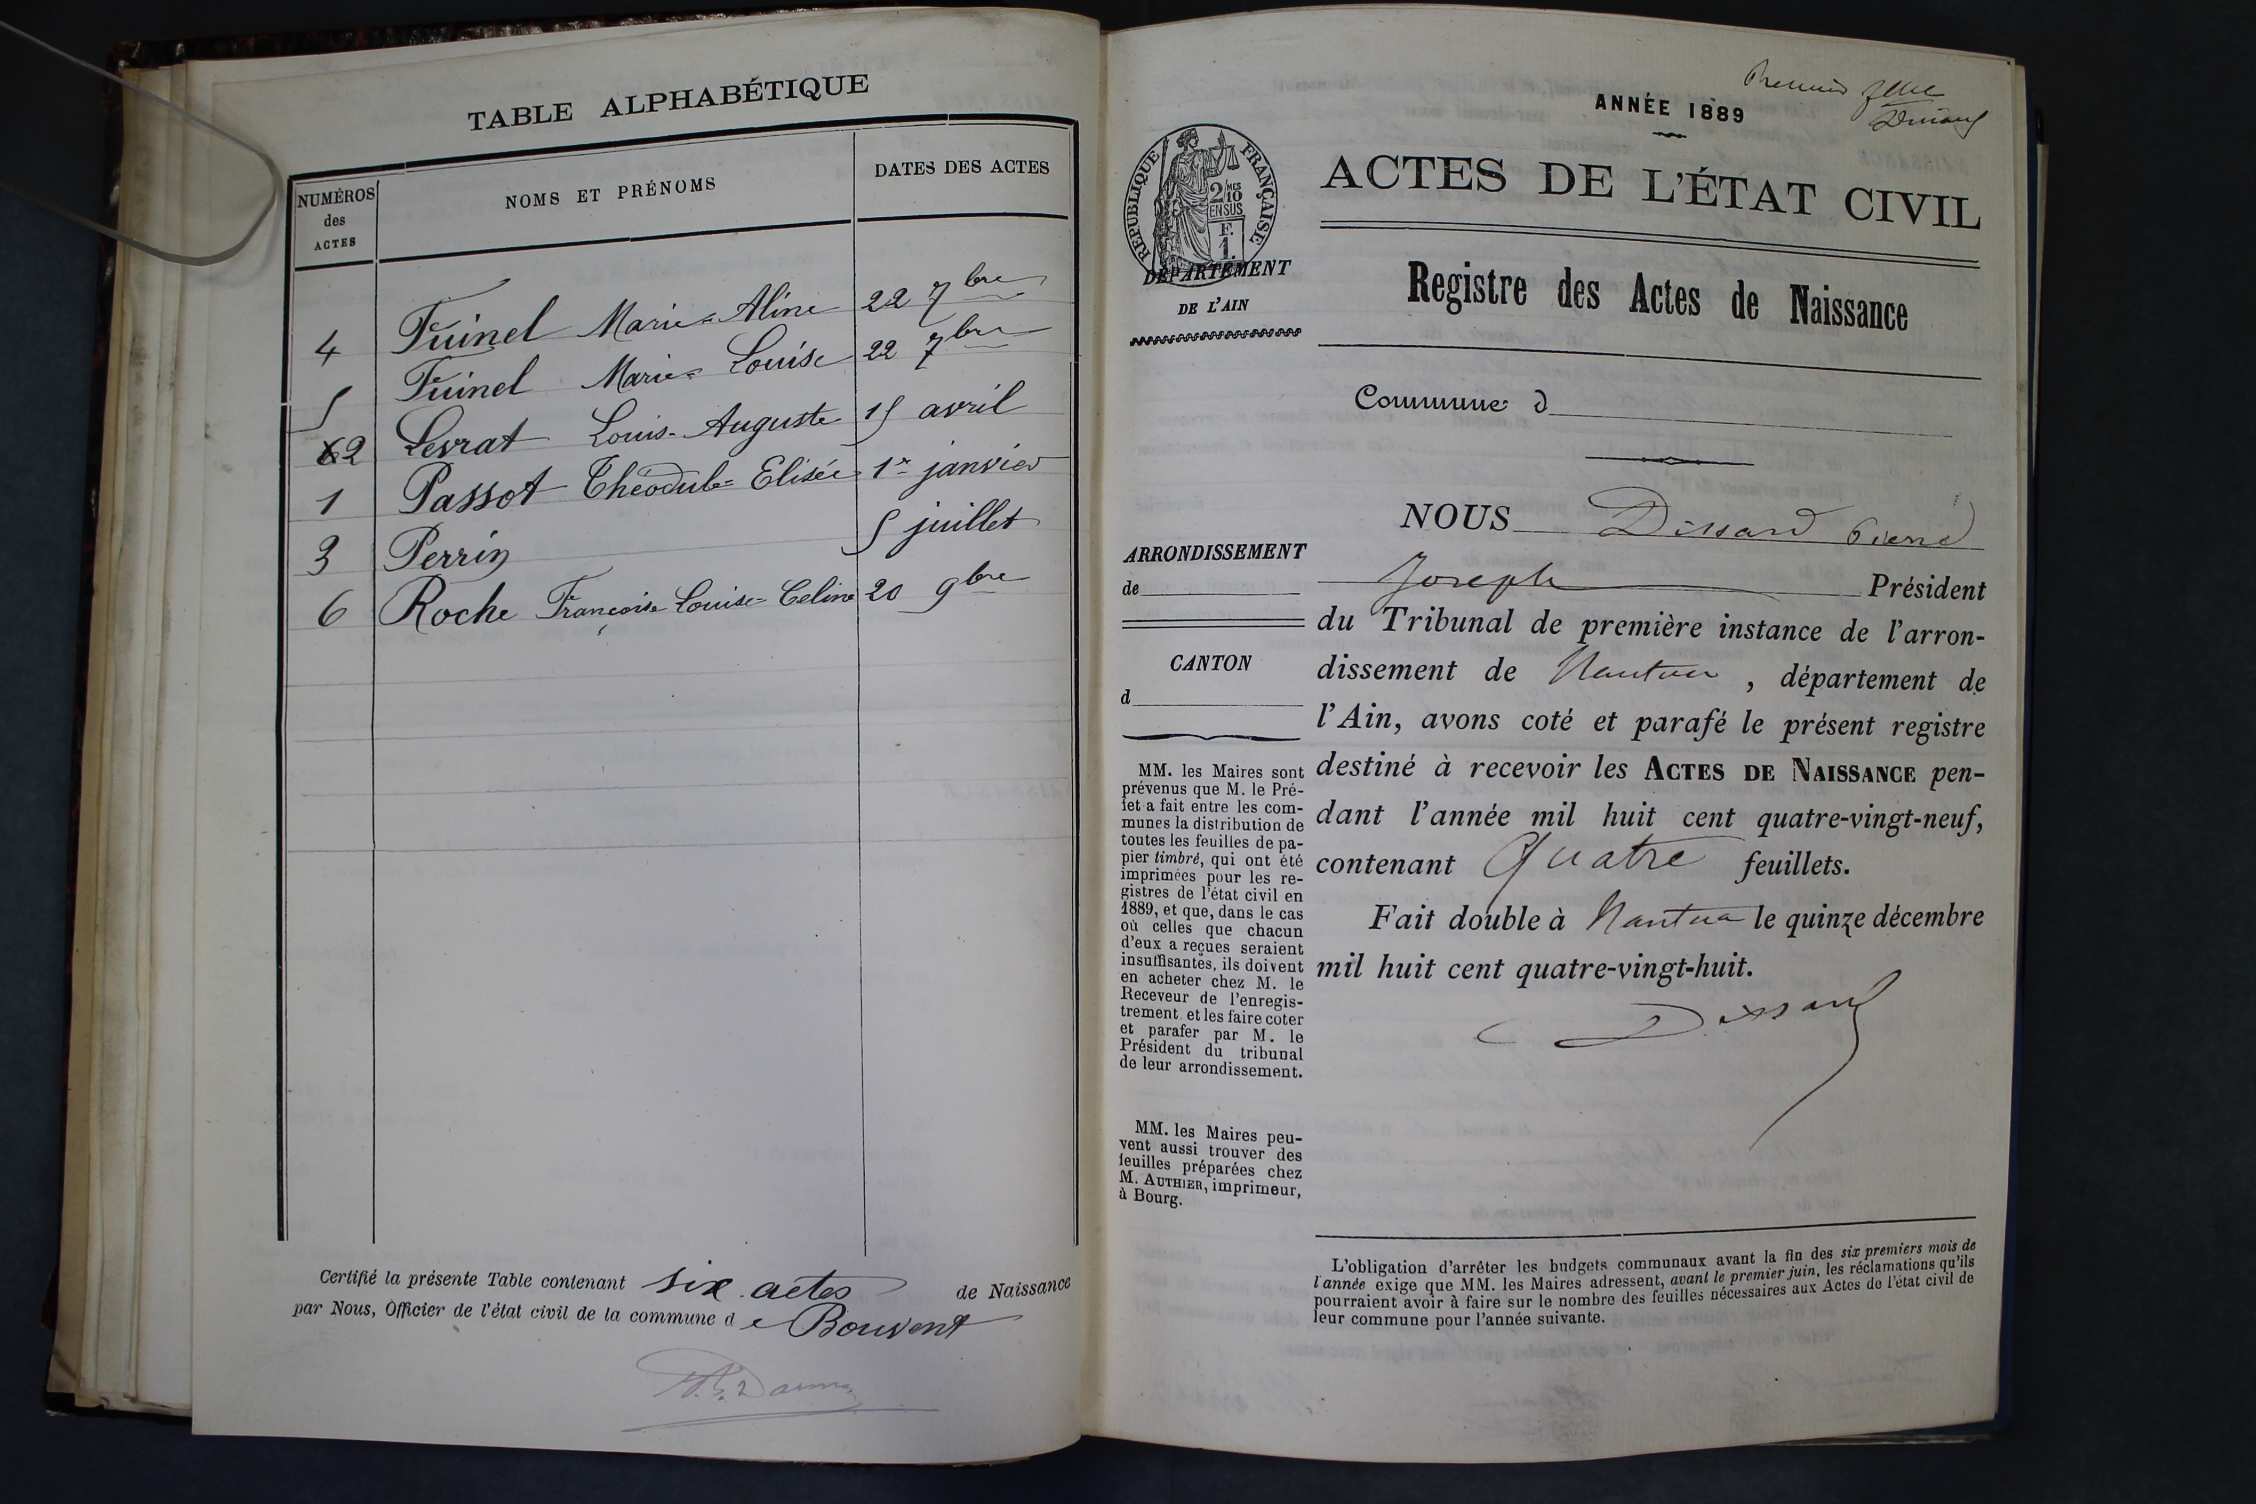 TABLE ALPHABÉTIQUE
NUMÉROS des ACTES
NOMS ET PRÉNOMS
DATES DES ACTES
4 Tuinel Marie-Aline 22 7bre
5 Tuinel Marie-Louise 22 7bre
2 Levrat Louis-Auguste 15 avril
1 Passot Théodule-Elisée 1er janvier
3 Perrin 5 juillet
6 Roche Françoise Louise-Celine 20 9bre
Certifié la présente Table contenant six actes de Naissance
par Nous, Officier de l'état civil de la commune de Bouvent
Premier
ANNÉE 1889
RÉPUBLIQUE FRANÇAISE
2 MES
10
EN SUS
F.
1.
ACTES DE L'ÉTAT CIVIL
DÉPARTEMENT
DE L'AIN
Registre des Actes de Naissance
Commune d
NOUS Dissard Pierre
Joseph Président
du Tribunal de première instance de l'arron-
dissement de Nantua, département de
l'Ain, avons coté et parafé le présent registre
destiné à recevoir les ACTES DE NAISSANCE pen-
dant l'année mil huit cent quatre-vingt-neuf,
contenant Quatre feuillets.
Fait double à Nantua le quinze décembre
mil huit cent quatre-vingt-huit.
Dissard
ARRONDISSEMENT
de
CANTON
d
MM. les Maires sont
prévenus que M. le Pré-
fet a fait entre les com-
munes la distribution de
toutes les feuilles de pa-
pier timbré, qui ont été
imprimées pour les re-
gistres de l'état civil en
1889, et que, dans le cas
où celles que chacun
d'eux a reçues seraient
insuffisantes, ils doivent
en acheter chez M. le
Receveur de l'enregis-
trement et les faire coter
et parafer par M. le
Président du tribunal
de leur arrondissement.
MM. les Maires peu-
vent aussi trouver des
feuilles préparées chez
M. AUTHIER, imprimeur,
à Bourg.
L'obligation d'arrêter les budgets communaux avant la fin des six premiers mois de
l'année exige que MM. les Maires adressent, avant le premier juin, les réclamations qu'ils
pourraient avoir à faire sur le nombre des feuilles nécessaires aux Actes de l'état civil de
leur commune pour l'année suivante.